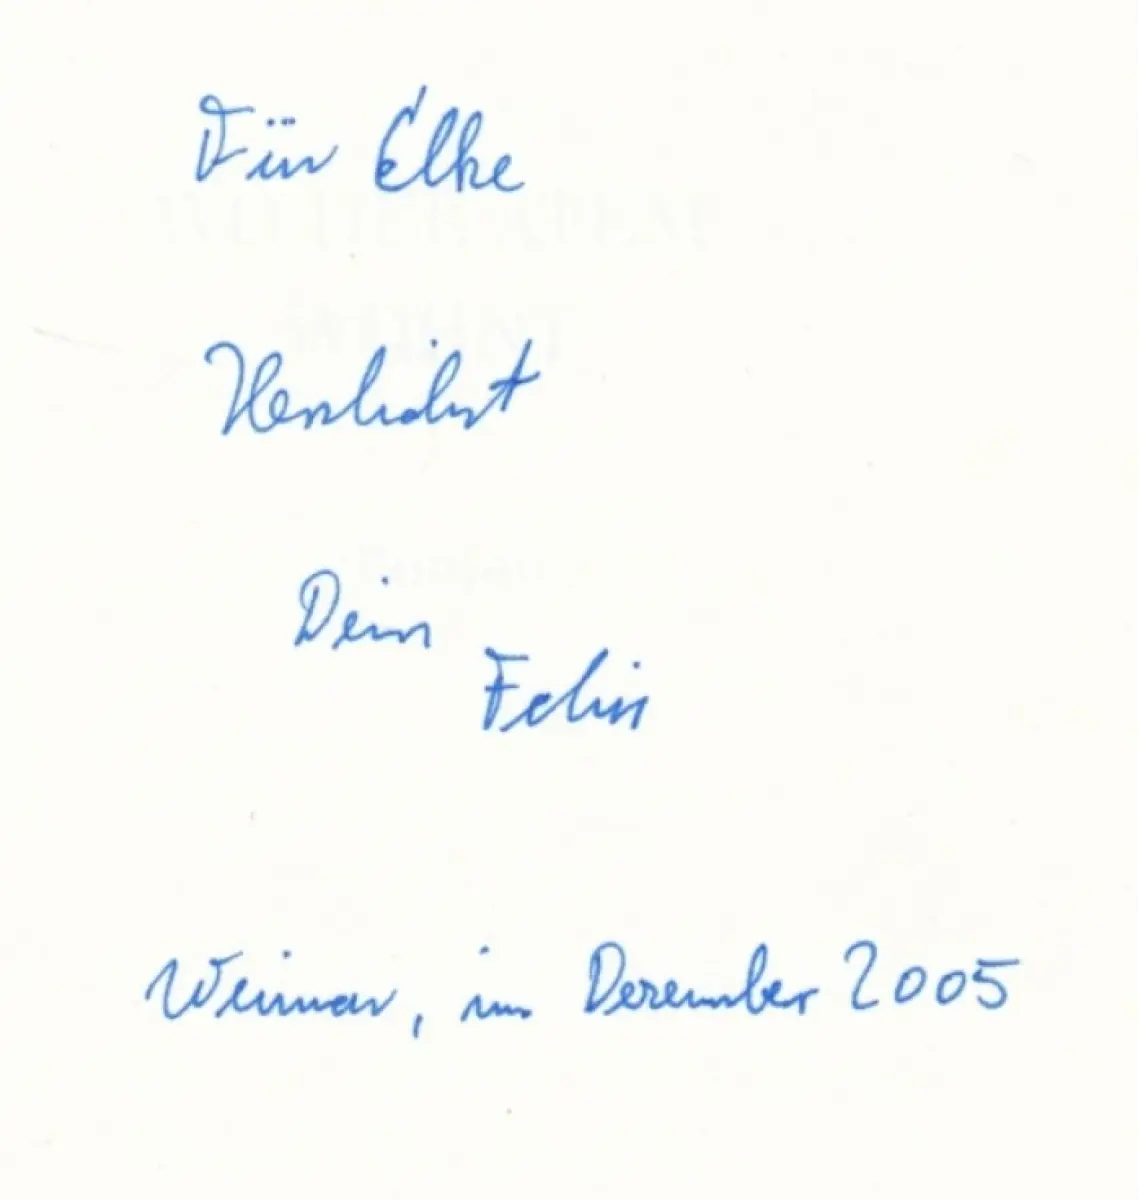 Für Elke
Herzlichst
Dein
Felix
Weimar, im Dezember 2005